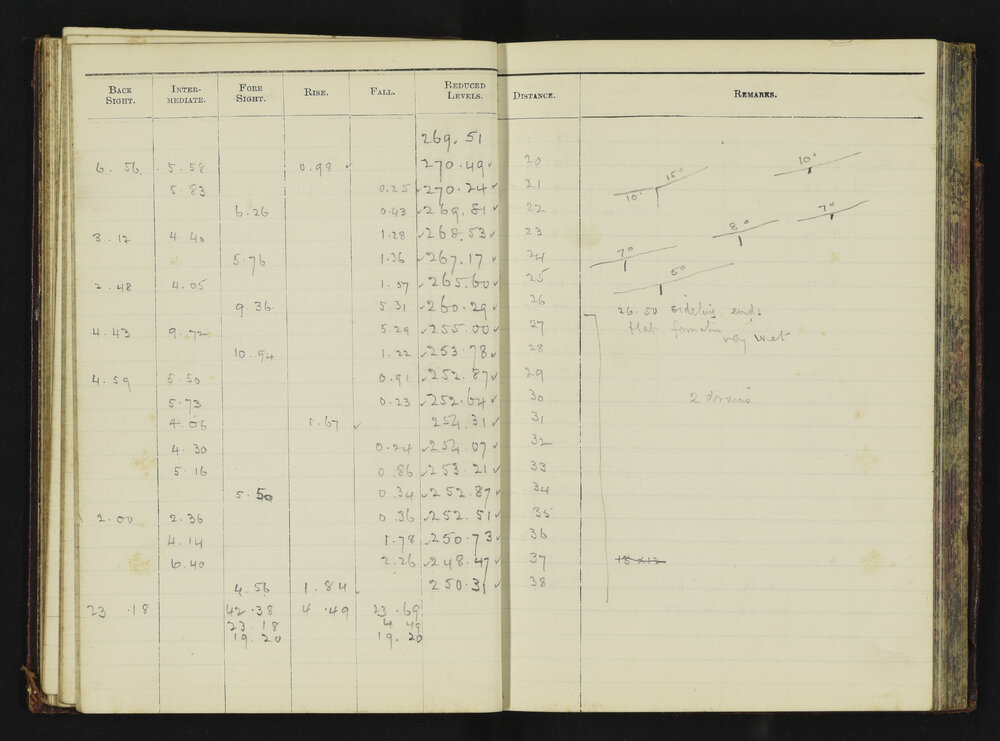 BACK SIGHT. INTER-MEDIATE. FORE SIGHT. RISE. FALL. REDUCED LEVELS. DISTANCE. REMARKS.
269.51
6.56 5.58 0.98 270.49 20 10° 15° 10°
5.83 0.25 270.24 21
6.26 0.43 269.81 22 7°
3.12 4.40 1.28 268.53 23 8°
5.76 1.36 267.17 24 7°
2.48 4.05 1.57 265.60 25 5°
9.36 5.31 260.29 36 26.50 sideling ends
4.43 9.72 5.29 255.00 27 flat formation
10.94 1.22 253.78 28 very wet
4.59 5.50 0.91 252.87 29
5.73 0.23 252.64 30 2 drains
4.06 1.67 254.31 31
4.30 0.24 254.07 32
5.16 0.86 253.21 33
5.50 0.34 252.87 34
2.00 2.36 0.36 252.51 35
4.14 1.78 250.73 36
6.40 2.26 248.47 37 18 x 12
4.56 1.84 250.31 38
23.18 42.38 4.49 23.69
23.18 4.49
19.20 19.20